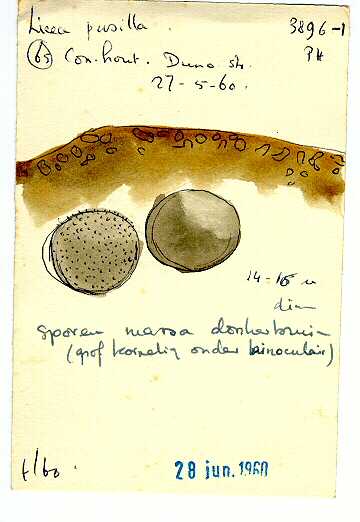 Licea pusilla
3896-1
(65) Con. hout. Duno str.
PH
27-5-60.
14-16 u
diam
sporen massa donkerbruin
(grof korrelig onder binoculair)
t/60.
28 jun. 1960